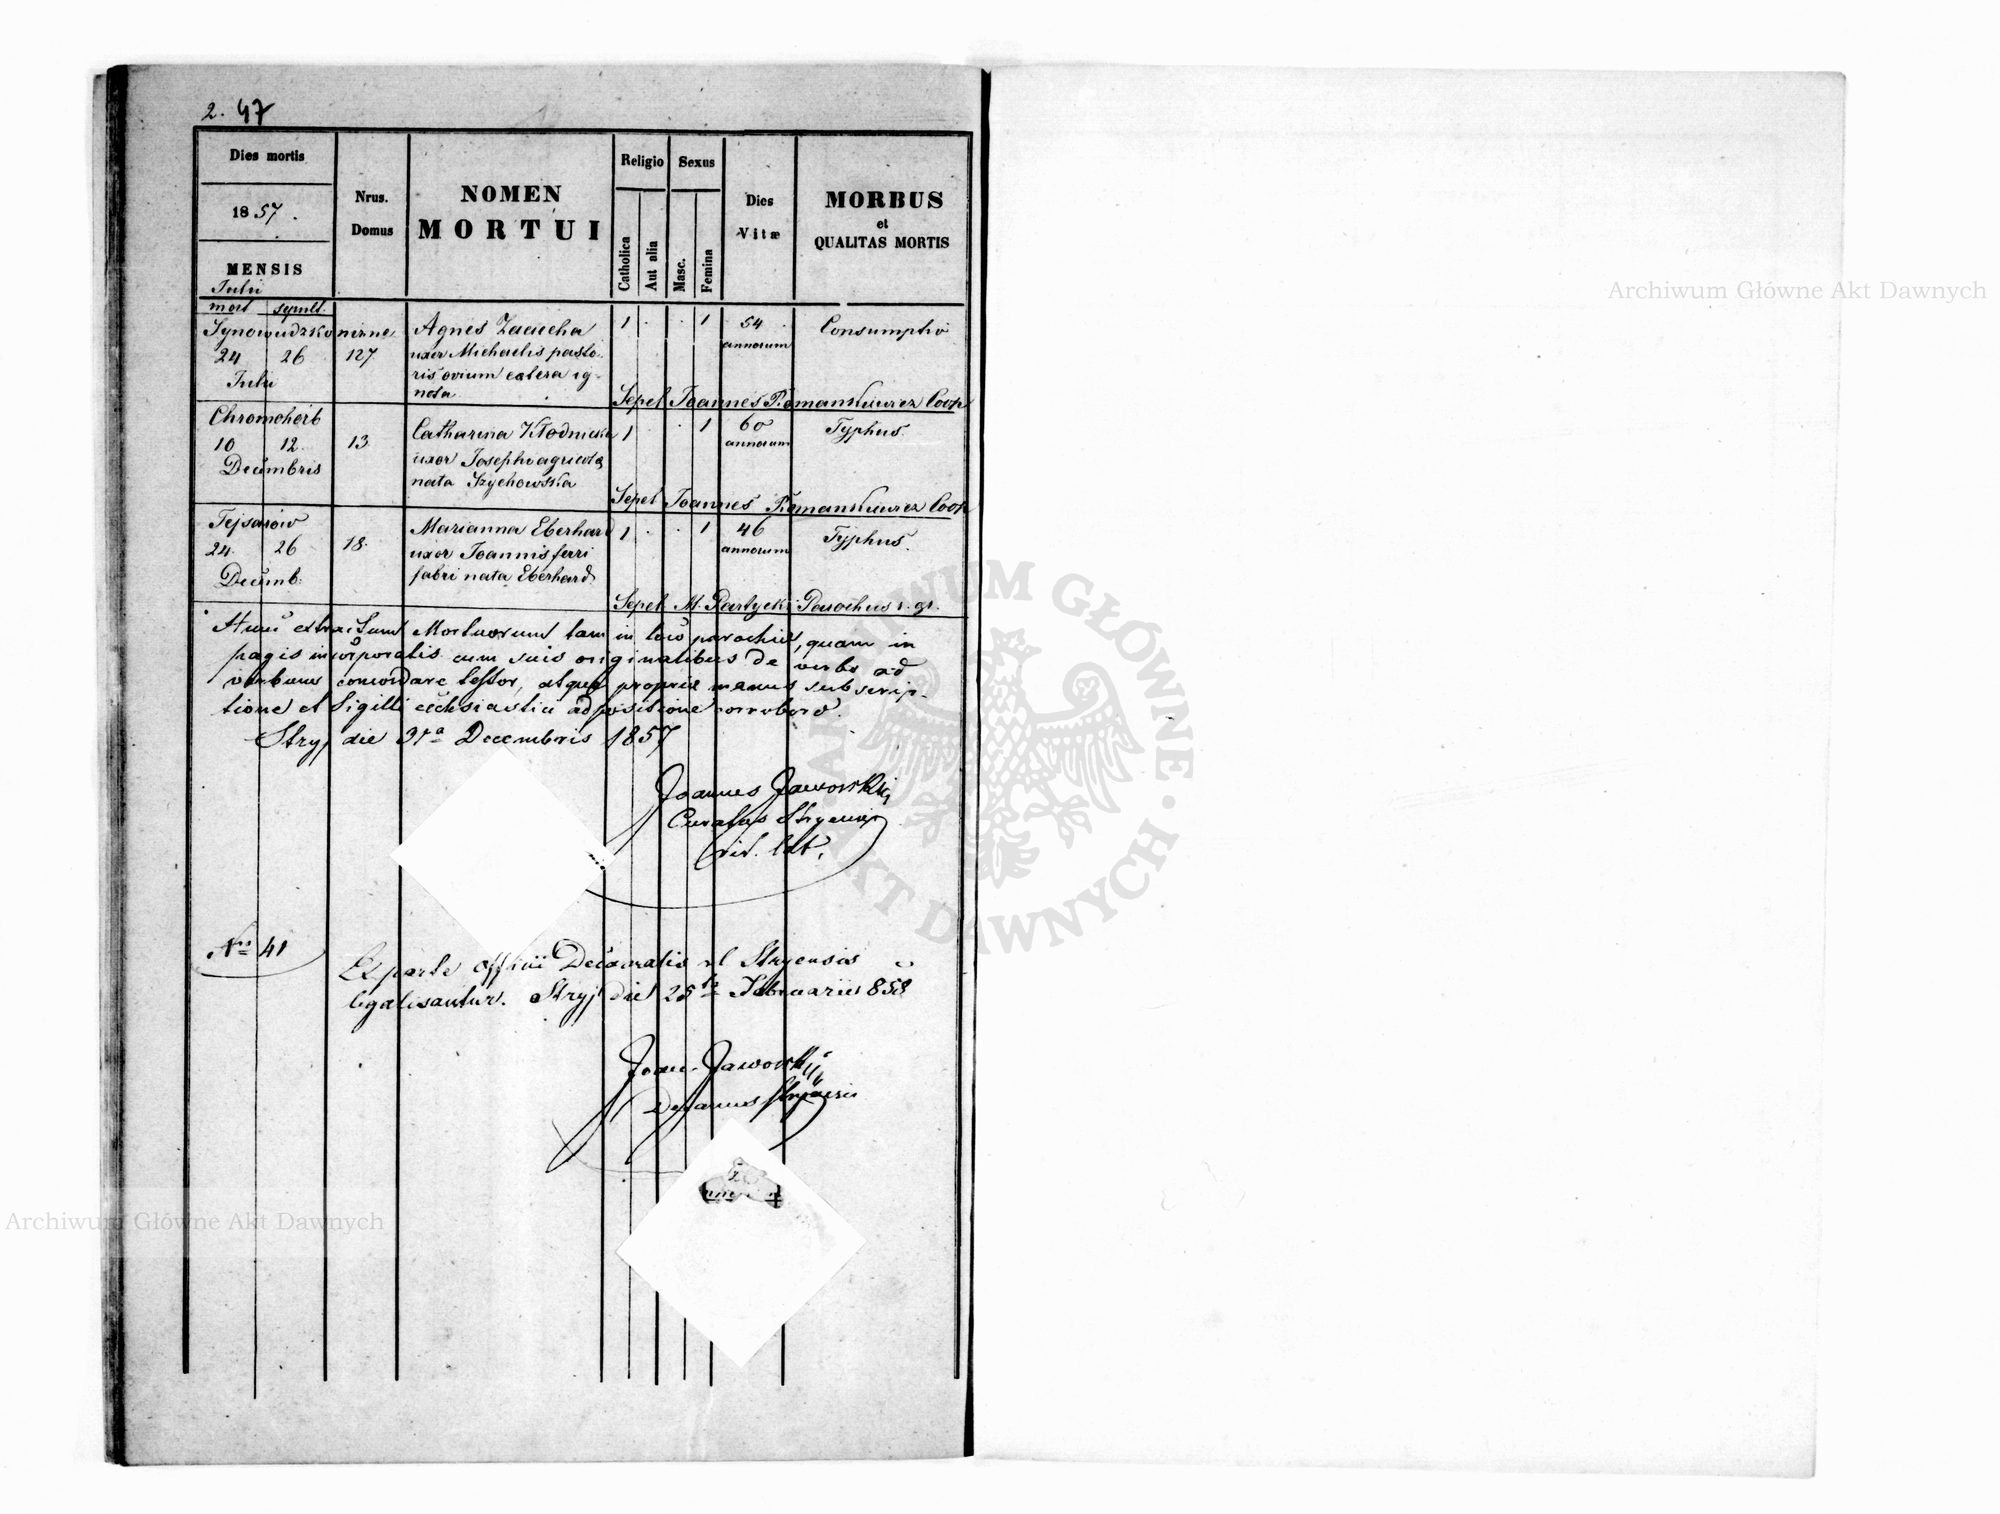 2. 47
Dies mortis
1857.
MENSIS
Julii
mort sepult.
Nrus. Domus
NOMEN
MORTUI
Religio
Catholica
Aut alia
Sexus
Masc.
Femina
Dies
Vitæ
MORBUS
et
QUALITAS MORTIS
Synowudzko nizne Agnes 1 . . 1 54 Consumptio
24 26 127 uxor Michaelis pasto- annorum
Julii ris ovium cetera ig-
nota
Sepel Joannes Romankiewicz Coop
Chromohorb Catharina Kłodnicka 1 . . 1 60 Typhus.
10 12. 13 uxor Josephi agricolæ annorum
Decembris nata Szychowska
Sepel Joannes Romankiewicz Coop
Tejsarów Marianna Eberhard 1 . . 1 46 Typhus.
24. 26 18. uxor Joannis ferri annorum
Decemb: fabri nata Eberhard
Sepel M. Partycki Parochus r. gr.
Hunc extractum Mortuorum tam in loco parochiæ, quam in
pagis incorporatis cum suis originalibus de verbo ad
verbum concordare testor, atque propriæ manus subscrip-
tione et Sigilli ecclesiastici adpositione corroboro.
Stryj die 31a Decembris 1857
Joannes Jaworski
Curatus Stryensis
Nro 41
Ex parte officii Decanalis r l Stryensis
legalisantur. Stryj die 25ta Februarii 858
Joan. Jaworski
Decanus Stryensis
Archiwum Główne Akt Dawnych
Archiwum Główne Akt Dawnych
ARCHIWUM GŁÓWNE AKT DAWNYCH